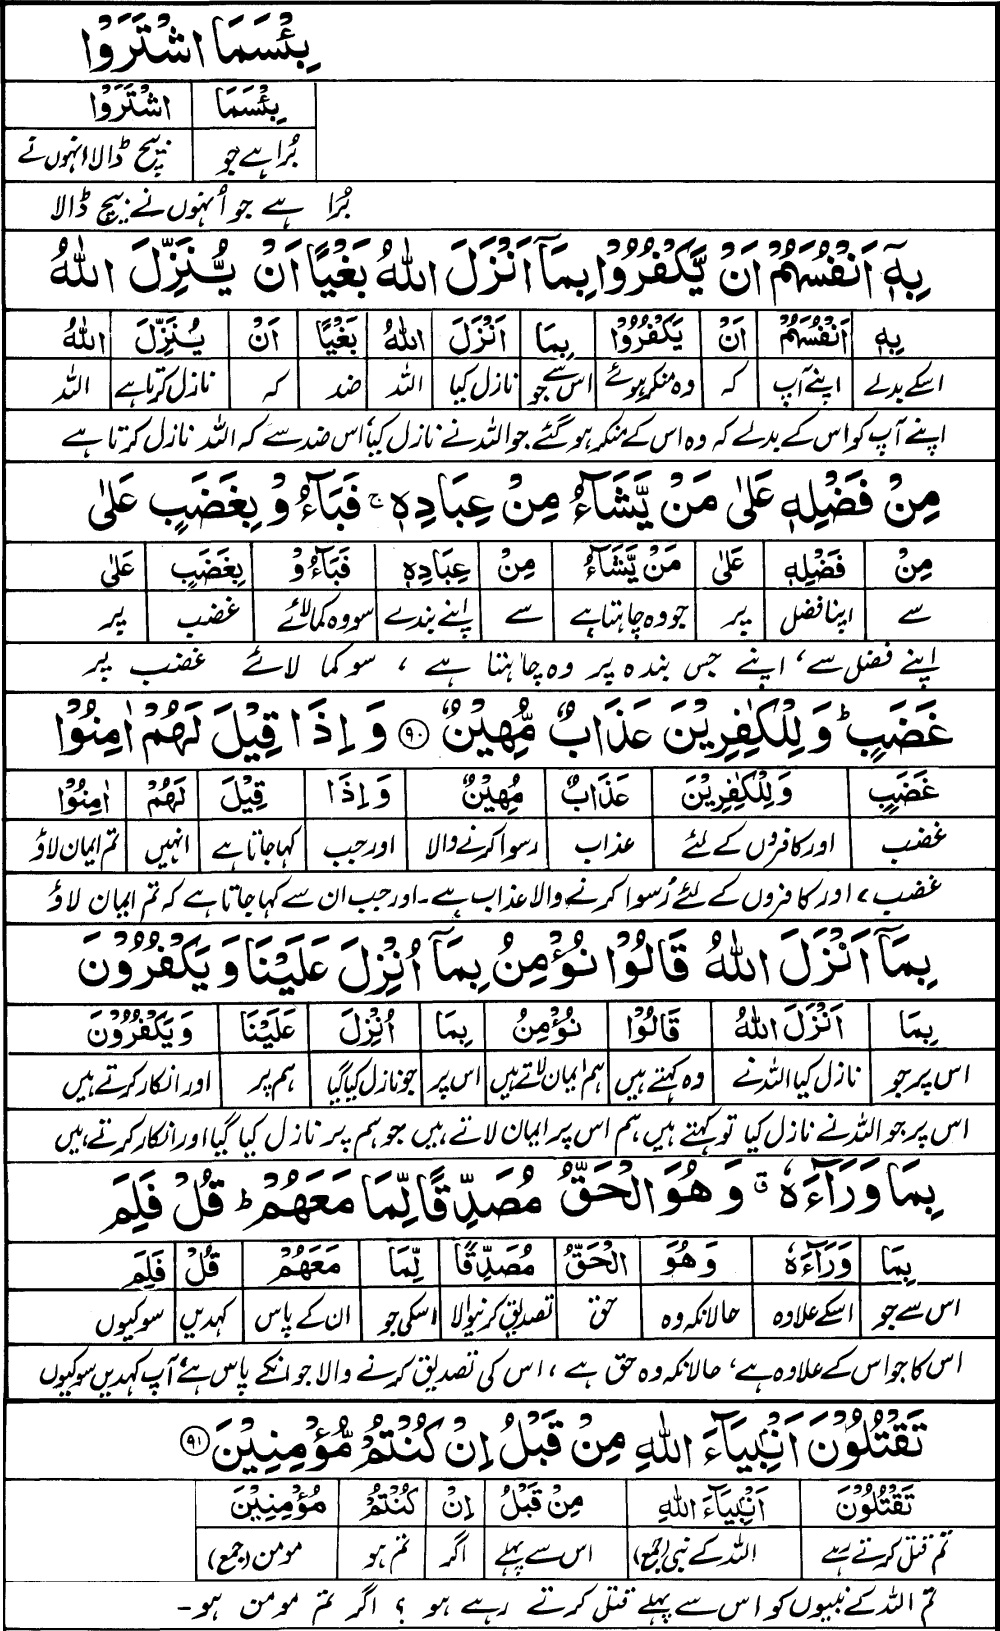 بِئْسَمَا اشْتَرَوْا
بِئْسَمَا اشْتَرَوْا
بُرا ہے جو بیچ ڈالا انہوں نے
بُرا ہے جو اُنہوں نے بیچ ڈالا
بِهٖۤ اَنْفُسَهُمْ اَنْ يَّكْفُرُوْا بِمَاۤ اَنْزَلَ اللهُ بَغْيًا اَنْ يُّنَزِّلَ اللهُ
بِهٖ اَنْفُسَهُمْ اَنْ يَكْفُرُوْا بِمَا اَنْزَلَ اللهُ بَغْيًا اَنْ يُنَزِّلَ اللهُ
اسکے بدلے اپنے آپ کہ وہ منکر ہوئے اس سے جو نازل کیا اللہ ضد کہ نازل کرتا ہے اللہ
اپنے آپ کو اس کے بدلے کہ وہ اس کے منکر ہو گئے جو اللہ نے نازل کیا اس ضد سے کہ اللہ نازل کرتا ہے
مِنْ فَضْلِهٖ عَلٰى مَنْ يَّشَآءُ مِنْ عِبَادِهٖ ۚ فَبَآءُوْ بِغَضَبٍ عَلٰى
مِنْ فَضْلِهٖ عَلٰى مَنْ يَّشَآءُ مِنْ عِبَادِهٖ فَبَآءُوْ بِغَضَبٍ عَلٰى
سے اپنا فضل پر جو وہ چاہتا ہے سے اپنے بندے سو وہ کما لائے غضب پر
اپنے فضل سے، اپنے جس بندہ پر وہ چاہتا ہے، سو کما لائے غضب پر
غَضَبٍ ؕ وَلِلْكٰفِرِيْنَ عَذَابٌ مُّهِيْنٌ ۹۰ وَاِذَا قِيْلَ لَهُمْ اٰمِنُوْا
غَضَبٍ وَلِلْكٰفِرِيْنَ عَذَابٌ مُهِيْنٌ وَاِذَا قِيْلَ لَهُمْ اٰمِنُوْا
غضب اور کافروں کے لئے عذاب رسوا کرنے والا اور جب کہا جاتا ہے انہیں تم ایمان لاؤ
غضب، اور کافروں کے لئے رُسوا کرنے والا عذاب ہے۔ اور جب ان سے کہا جاتا ہے کہ تم ایمان لاؤ
بِمَاۤ اَنْزَلَ اللهُ قَالُوْا نُؤْمِنُ بِمَاۤ اُنْزِلَ عَلَيْنَا وَيَكْفُرُوْنَ
بِمَا اَنْزَلَ اللهُ قَالُوْا نُؤْمِنُ بِمَا اُنْزِلَ عَلَيْنَا وَيَكْفُرُوْنَ
اس پر جو نازل کیا اللہ نے وہ کہتے ہیں ہم ایمان لاتے ہیں اس پر جو نازل کیا گیا ہم پر اور انکار کرتے ہیں
اس پر جو اللہ نے نازل کیا تو کہتے ہیں ہم اس پر ایمان لاتے ہیں جو ہم پر نازل کیا گیا اور انکار کرتے ہیں
بِمَا وَرَآءَهٗ ۗ وَهُوَ الْحَقُّ مُصَدِّقًا لِّمَا مَعَهُمْ ؕ قُلْ فَلِمَ
بِمَا وَرَآءَهٗ وَهُوَ الْحَقُّ مُصَدِّقًا لِّمَا مَعَهُمْ قُلْ فَلِمَ
اس سے جو اسکے علاوہ حالانکہ وہ حق تصدیق کرنیوالا اسکی جو ان کے پاس کہدیں سو کیوں
اس کا جو اس کے علاوہ ہے، حالانکہ وہ حق ہے، اس کی تصدیق کرنے والا جو انکے پاس ہے، آپ کہدیں سو کیوں
تَقْتُلُوْنَ اَنْۢبِيَآءَ اللهِ مِنْ قَبْلُ اِنْ كُنْتُمْ مُّؤْمِنِيْنَ ۹۱
تَقْتُلُوْنَ اَنْۢبِيَآءَ اللهِ مِنْ قَبْلُ اِنْ كُنْتُمْ مُؤْمِنِيْنَ
تم قتل کرتے رہے اللہ کے نبی (جمع) اس سے پہلے اگر تم ہو مومن (جمع)
تم اللہ کے نبیوں کو اس سے پہلے قتل کرتے رہے ہو؟ اگر تم مومن ہو۔